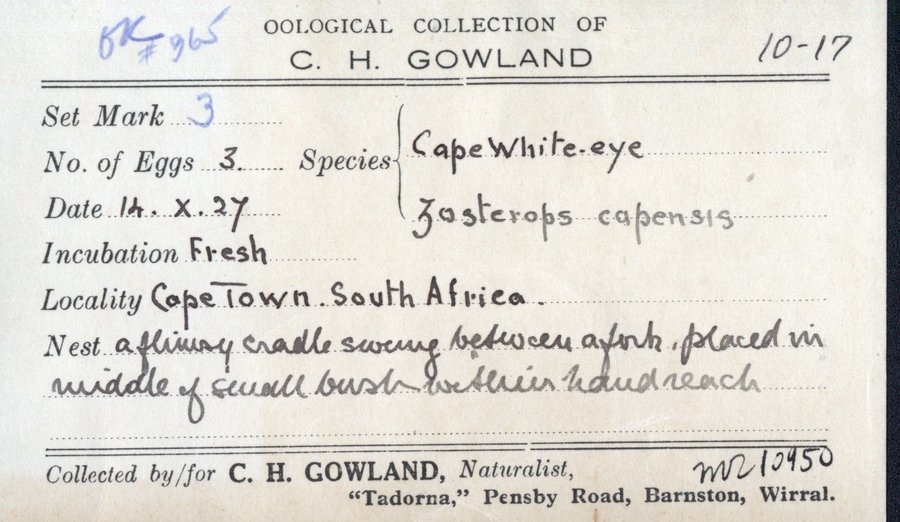 OOLOGICAL COLLECTION OF
C. H. GOWLAND
10-17
#965
Set Mark 3
No. of Eggs 3.
Species
Cape White-eye
Zosterops capensis
Date 14. X. 27
Incubation Fresh
Locality Cape Town. South Africa.
Nest a flimsy cradle swung between a fork, placed in
middle of small bush within hand reach
Collected by/for C. H. GOWLAND, Naturalist,
10950
"Tadorna," Pensby Road, Barnston, Wirral.